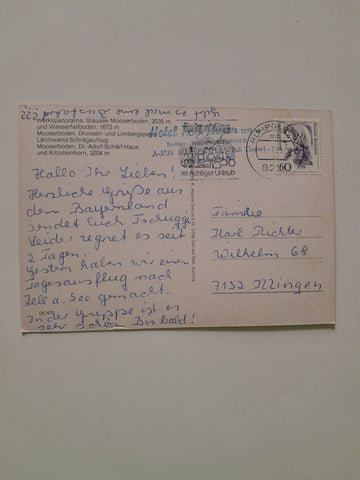 Werkspanorama: Stausee Mooserboden, 2036 m
und Wasserfallboden, 1672 m
Mooserboden, Drossen- und Limbergsperre
Lärchwand-Schrägaufzug
Mooserboden, Dr. Adolf-Schärf-Haus
und Kitzsteinhorn, 3204 m
Hotel
ist richtiger Urlaub
60
Hallo Ihr Lieben!
Herzliche Grüße aus
dem Bayernland
sendet Euch
Leider regnet es seit
2 Tagen.
Gestern haben wir einen
Tagesausflug nach
Zell a. See gemacht.
In der Gruppe ist es
sehr schön Bis bald!
Familie
Karl Richter
Wilhelm 68
7132 Illingen